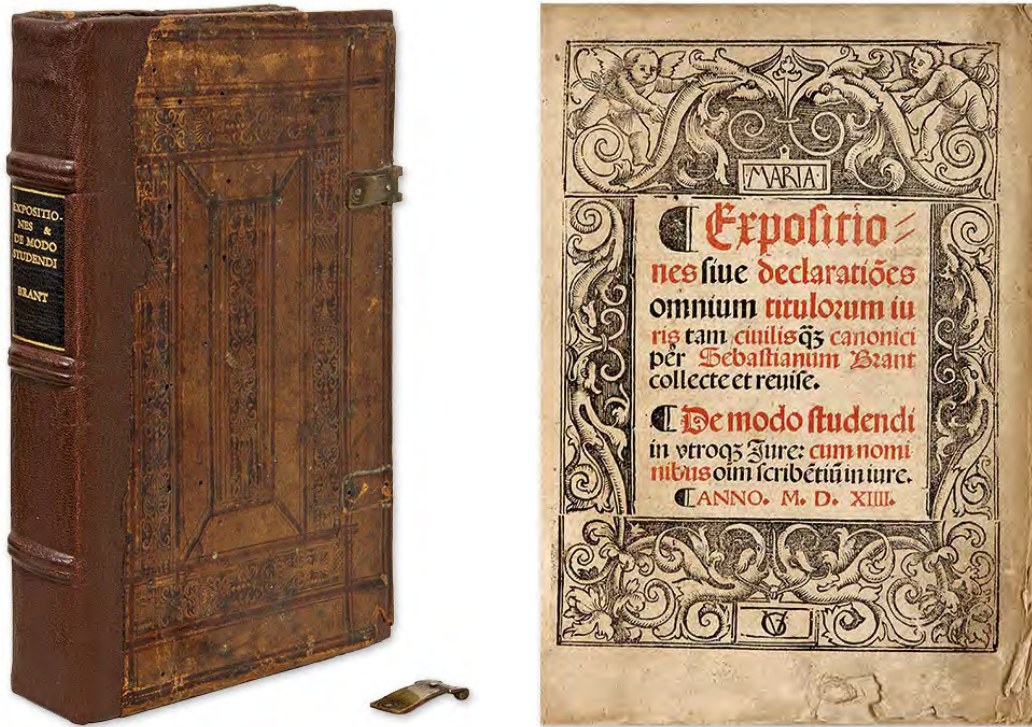 EXPOSITIO-
NES &
DE MODO
STUDENDI
BRANT
MARIA
⸿ Expoſitio⸗
nes ſiue declaratiões
omnium titulorum iu
ris tam ciuilis qꝫ canonici
per Sebaſtianum Brant
collecte et reuiſe.
⸿ De modo ſtudendi
in vtroqꝫ Jure: cum nomi
nibus oim ſcribẽtiũ in iure.
⸿ ANNO. M. D. XIIII.
VG